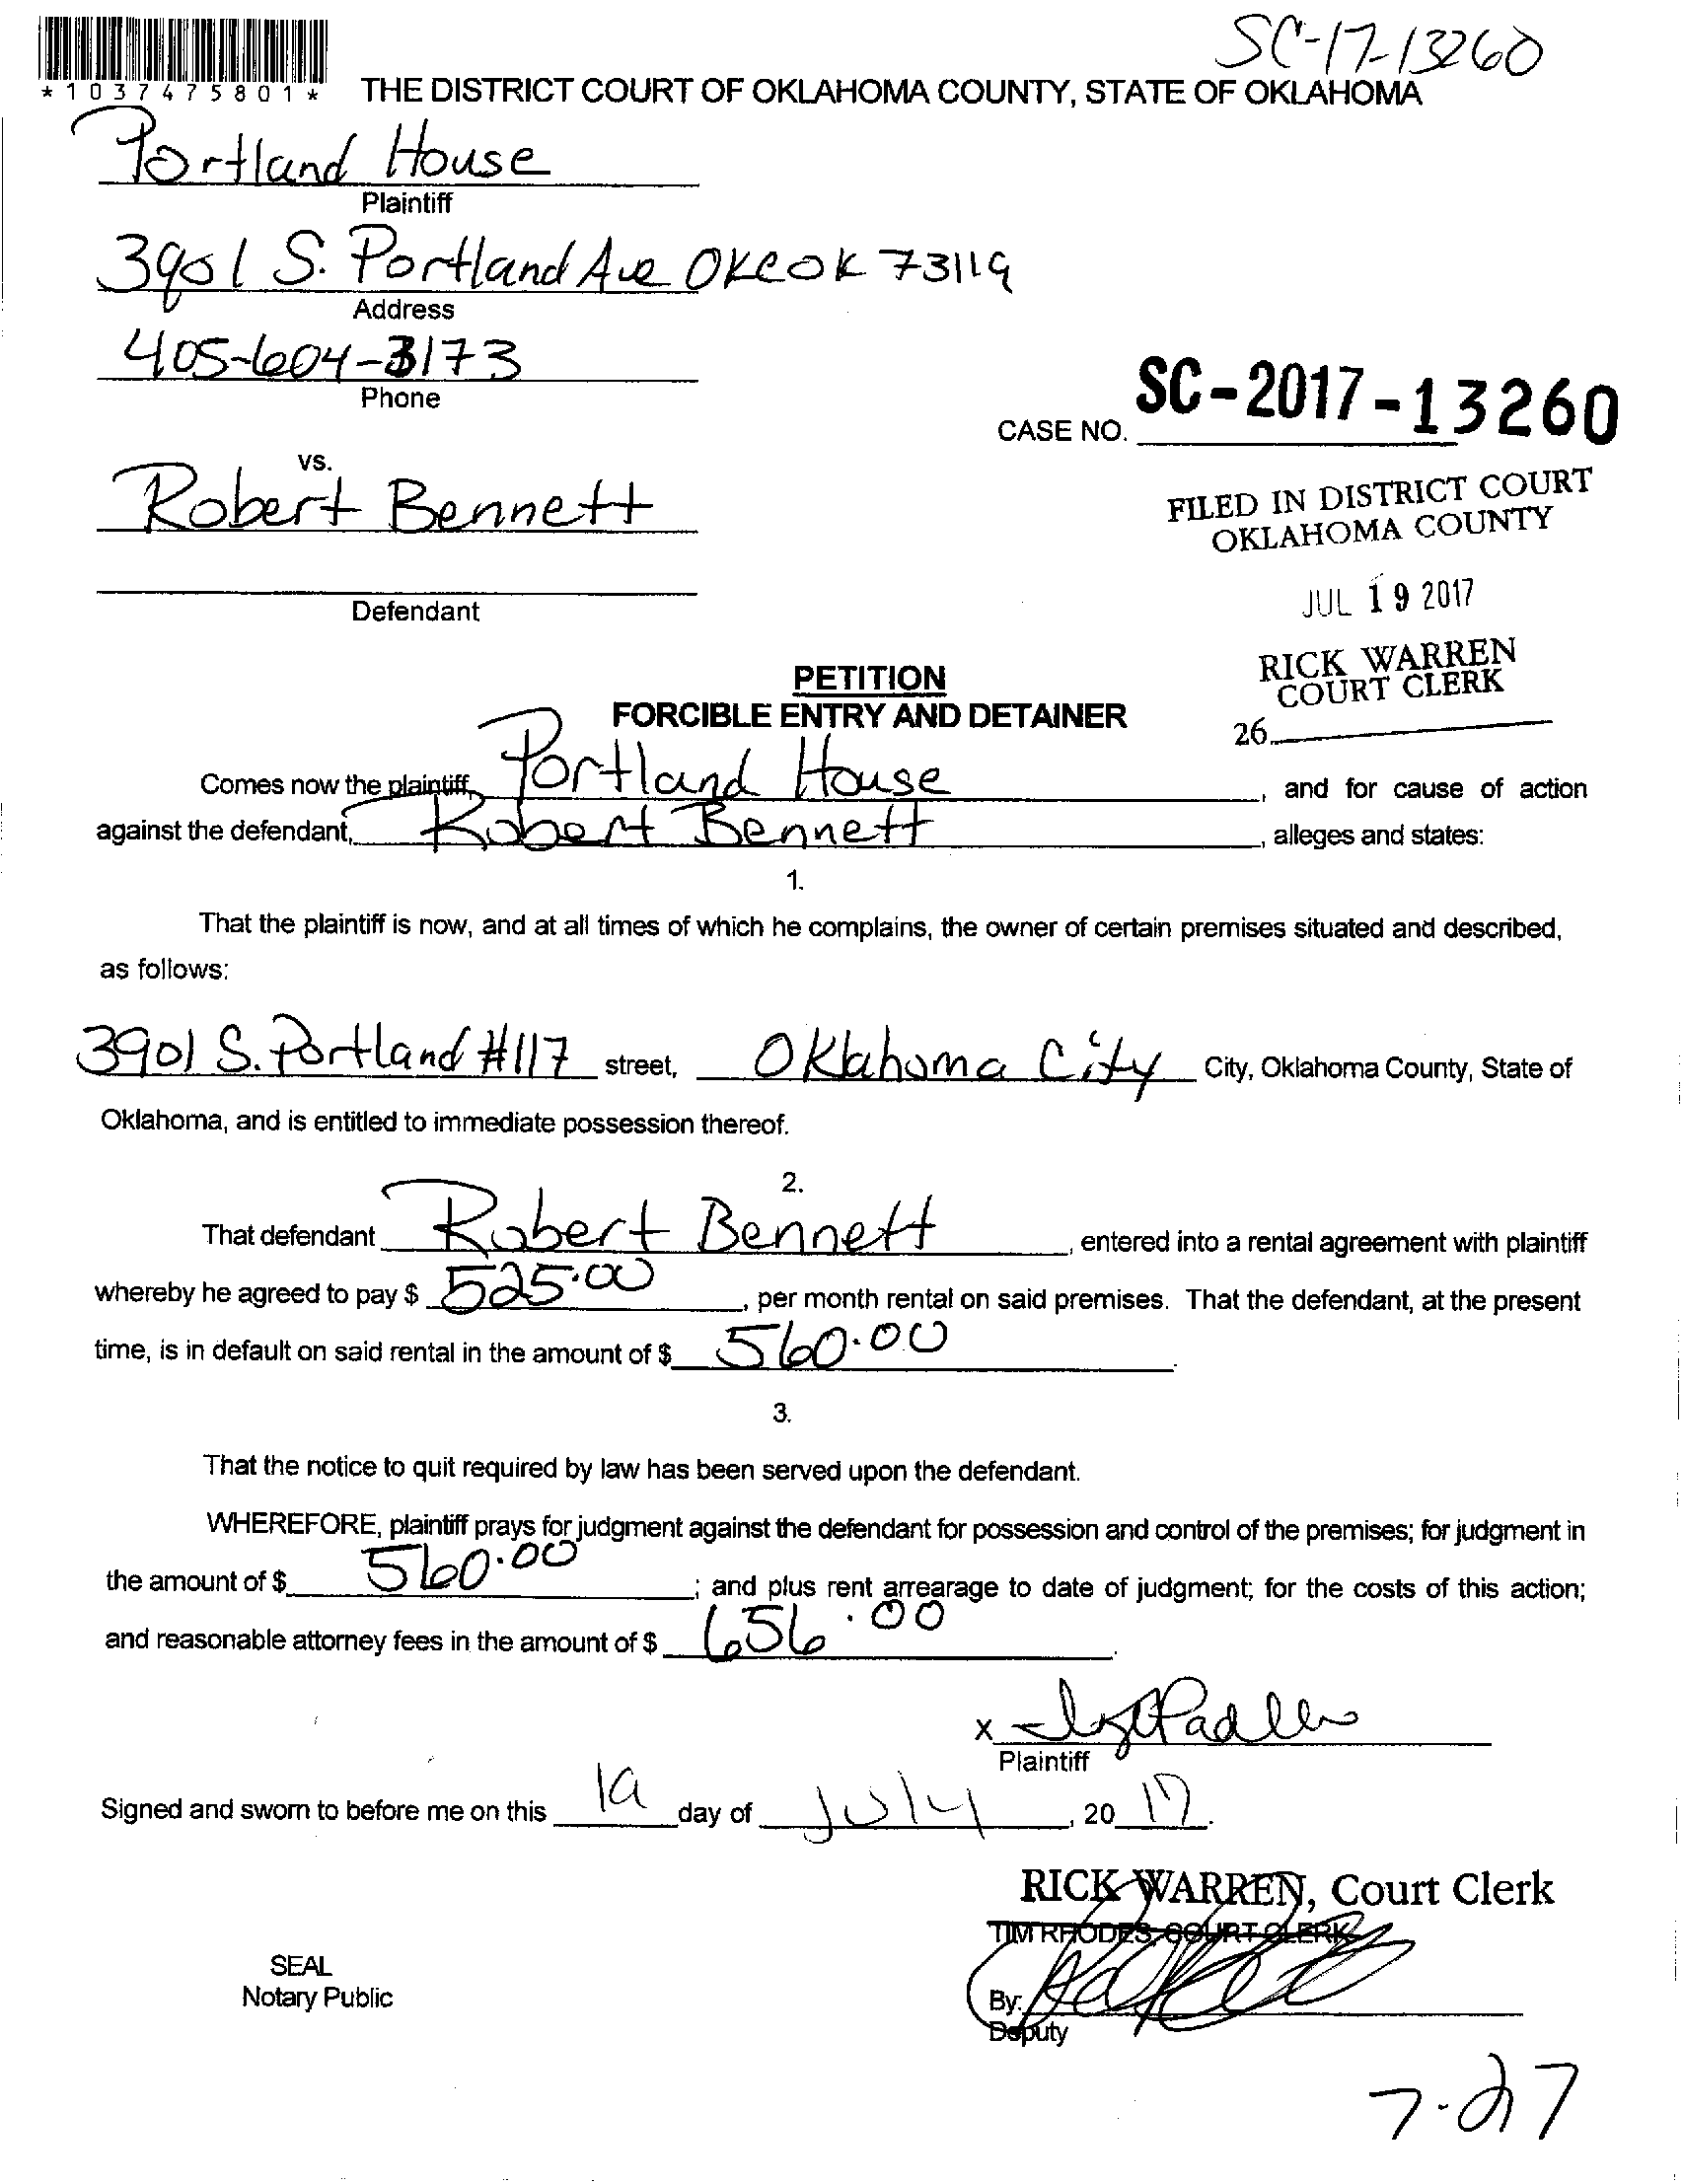 SC-17-13260
*1037475801*
THE DISTRICT COURT OF OKLAHOMA COUNTY, STATE OF OKLAHOMA
Portland House
Plaintiff
3901 S. Portland Ave OKC OK 73119
Address
405-604-3173
Phone
SC-2017-13260
CASE NO.
vs.
Robert Bennett
FILED IN DISTRICT COURT
OKLAHOMA COUNTY
JUL 19 2017
Defendant
RICK WARREN
COURT CLERK
26
PETITION
FORCIBLE ENTRY AND DETAINER
Comes now the plaintiff, Portland House, and for cause of action
against the defendant, Robert Bennett, alleges and states:
1.
That the plaintiff is now, and at all times of which he complains, the owner of certain premises situated and described,
as follows:
3901 S. Portland #117 street, Oklahoma City City, Oklahoma County, State of
Oklahoma, and is entitled to immediate possession thereof.
2.
That defendant Robert Bennett, entered into a rental agreement with plaintiff
whereby he agreed to pay $ 525.00, per month rental on said premises. That the defendant, at the present
time, is in default on said rental in the amount of $ 560.00.
3.
That the notice to quit required by law has been served upon the defendant.
WHEREFORE, plaintiff prays for judgment against the defendant for possession and control of the premises; for judgment in
the amount of $ 560.00; and plus rent arrearage to date of judgment; for the costs of this action;
and reasonable attorney fees in the amount of $ 656.00.
x
Plaintiff
Signed and sworn to before me on this 19 day of July, 2017.
RICK WARREN, Court Clerk
TIM RHODES, COURT CLERK
SEAL
Notary Public
By:
Deputy
7-27